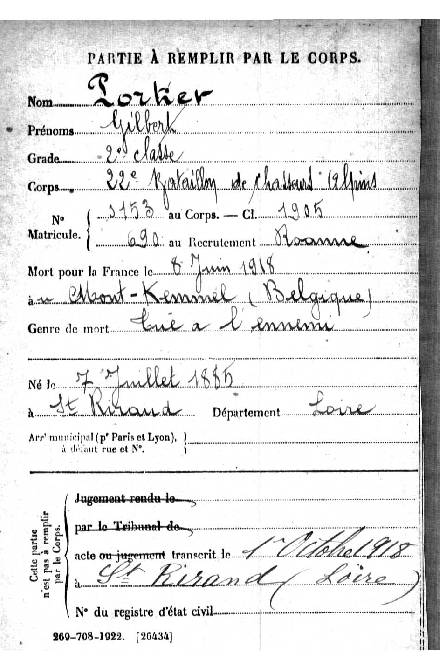 PARTIE À REMPLIR PAR LE CORPS.
Nom Portier
Prénoms Gilbert
Grade 2e classe
Corps 22e Bataillon de Chasseurs Alpins
N° Matricule. { 5153 au Corps. — Cl. 1905
690 au Recrutement Roanne
Mort pour la France le 8 Juin 1918
à u Mont-Kemmel (Belgique)
Genre de mort Tué a l'ennemi
Né le 7 Juillet 1885
à St Rirand Département Loire
Arrt municipal (pr Paris et Lyon), à défaut rue et N°.
Cette partie n'est pas à remplir par le Corps.
Jugement rendu le
par le Tribunal de
acte ou jugement transcrit le 1er Octobre 1918
à St Rirand (Loire)
N° du registre d'état civil
269-708-1922. [26434]